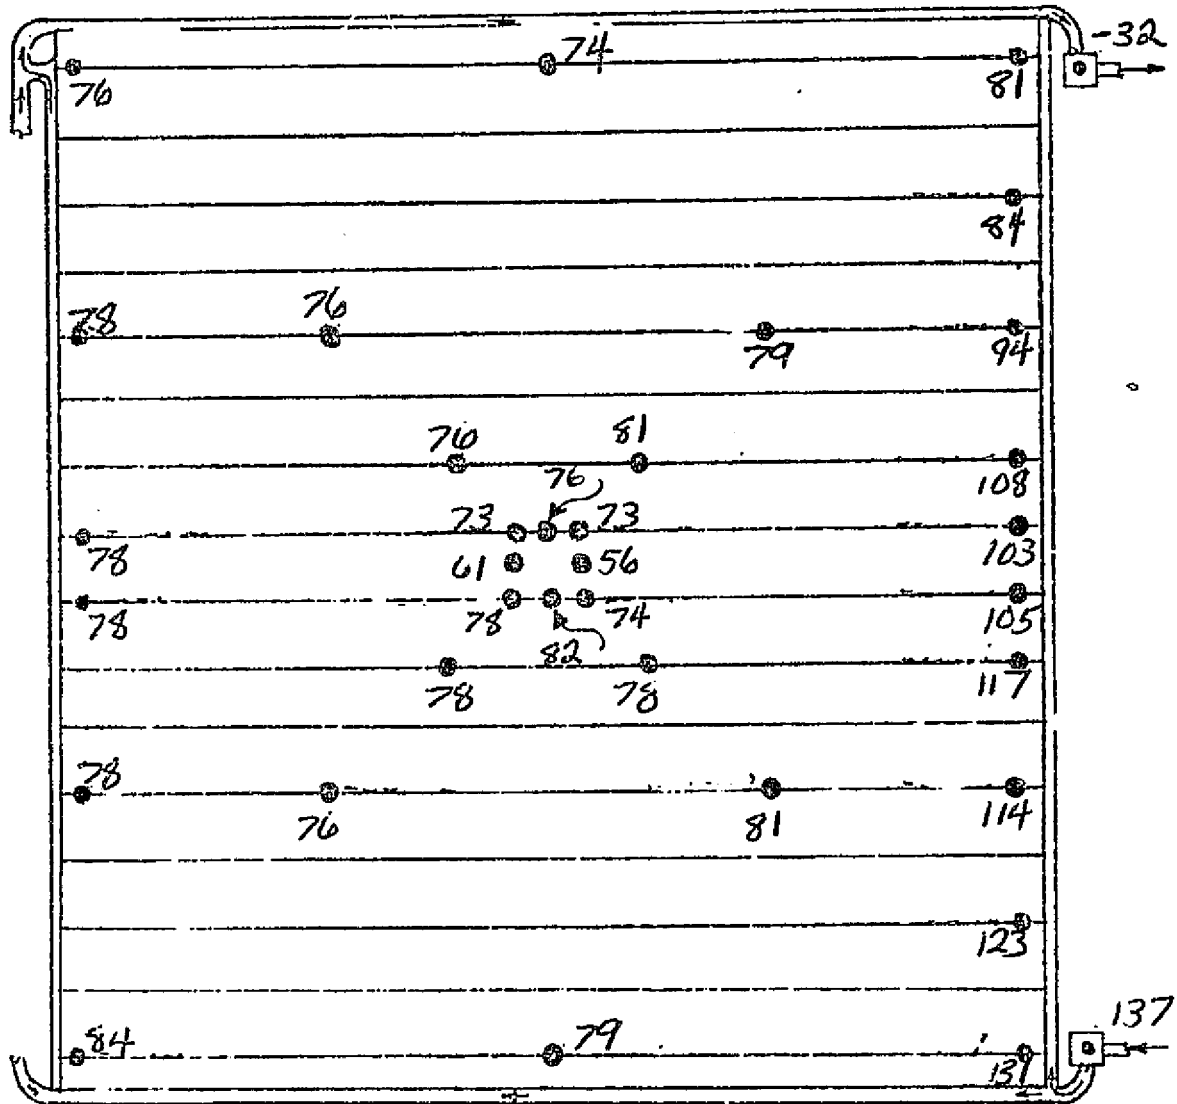 -32
74
76
81
84
78
76
79
94
76
81
108
76
73
73
103
78
61
56
78
78
74
105
82
78
78
117
78
76
81
114
123
137
84
79
131